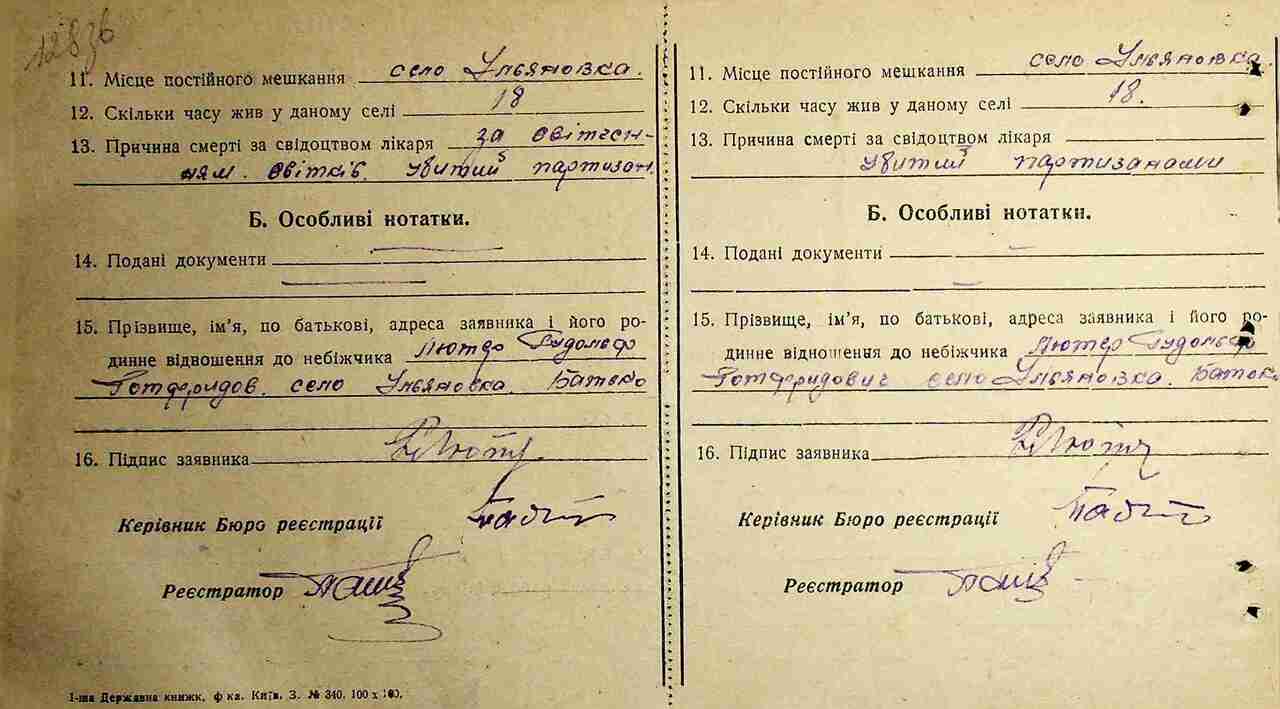 12836
11. Місце постійного мешкання село Ульяновка.
12. Скільки часу жив у даному селі 18
13. Причина смерті за свідоцтвом лікаря за світчен-
ням. світків. убитий партизан.
Б. Особливі нотатки.
14. Подані документи
15. Прізвище, ім'я, по батькові, адреса заявника і його ро-
динне відношення до небіжчика Лютер Рудольф
Готфридов. село Ульяновка. Батько
16. Підпис заявника
Керівник Бюро реєстрації
Реєстратор
1-ша Державна книжк. ф-ка. Київ. З. № 340. 100 х 100.
11. Місце постійного мешкання село Ульяновка.
12. Скільки часу жив у даному селі 18.
13. Причина смерті за свідоцтвом лікаря
убитий партизанами
Б. Особливі нотатки.
14. Подані документи
15. Прізвище, ім'я, по батькові, адреса заявника і його ро-
динне відношення до небіжчика Лютер Рудольф
Готфридович село Ульяновка. Батько
16. Підпис заявника
Керівник Бюро реєстрації
Реєстратор